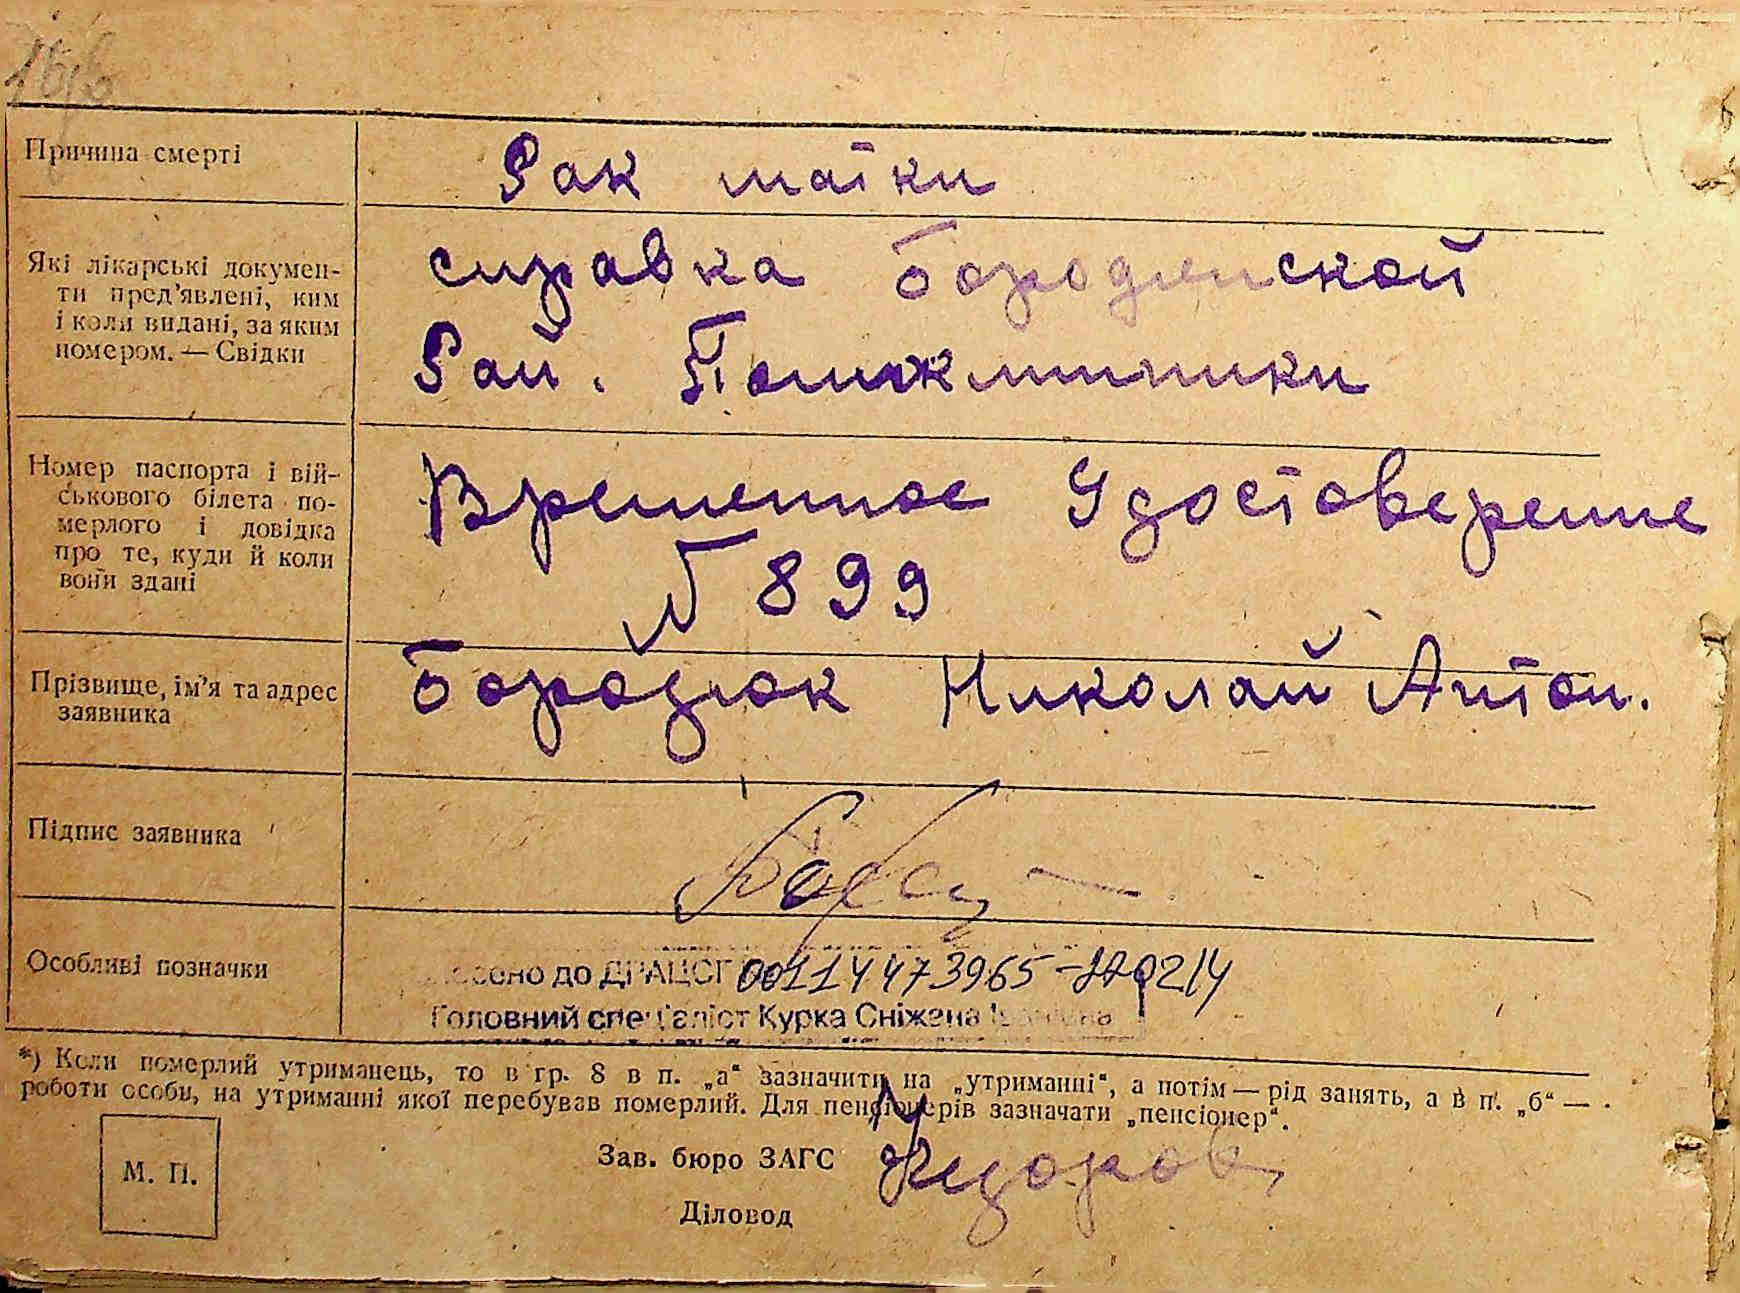 Причина смерті
Рак матки
Які лікарські докумен-
ти пред'явлені, ким
і коли видані, за яким
номером. — Свідки
справка бородянской
Рай. Поликлиники
Номер паспорта і вій-
ськового білета по-
мерлого і довідка
про те, куди й коли
вони здані
Временное Удостоверение
№ 899
Прізвище, ім'я та адрес
заявника
Бородюк Николай Антон.
Підпис заявника
Особливі позначки
до ДРАЦСГ 00114473965
Головний спеціаліст Курка Сніжана
*) Коли померлий утриманець, то в гр. 8 в п. „а“ зазначити на „утриманні“, а потім — рід занять, а в п. „б“ —
роботи особи, на утриманні якої перебував померлий. Для пенсіонерів зазначати „пенсіонер“.
М. П.
Зав. бюро ЗАГС
Діловод